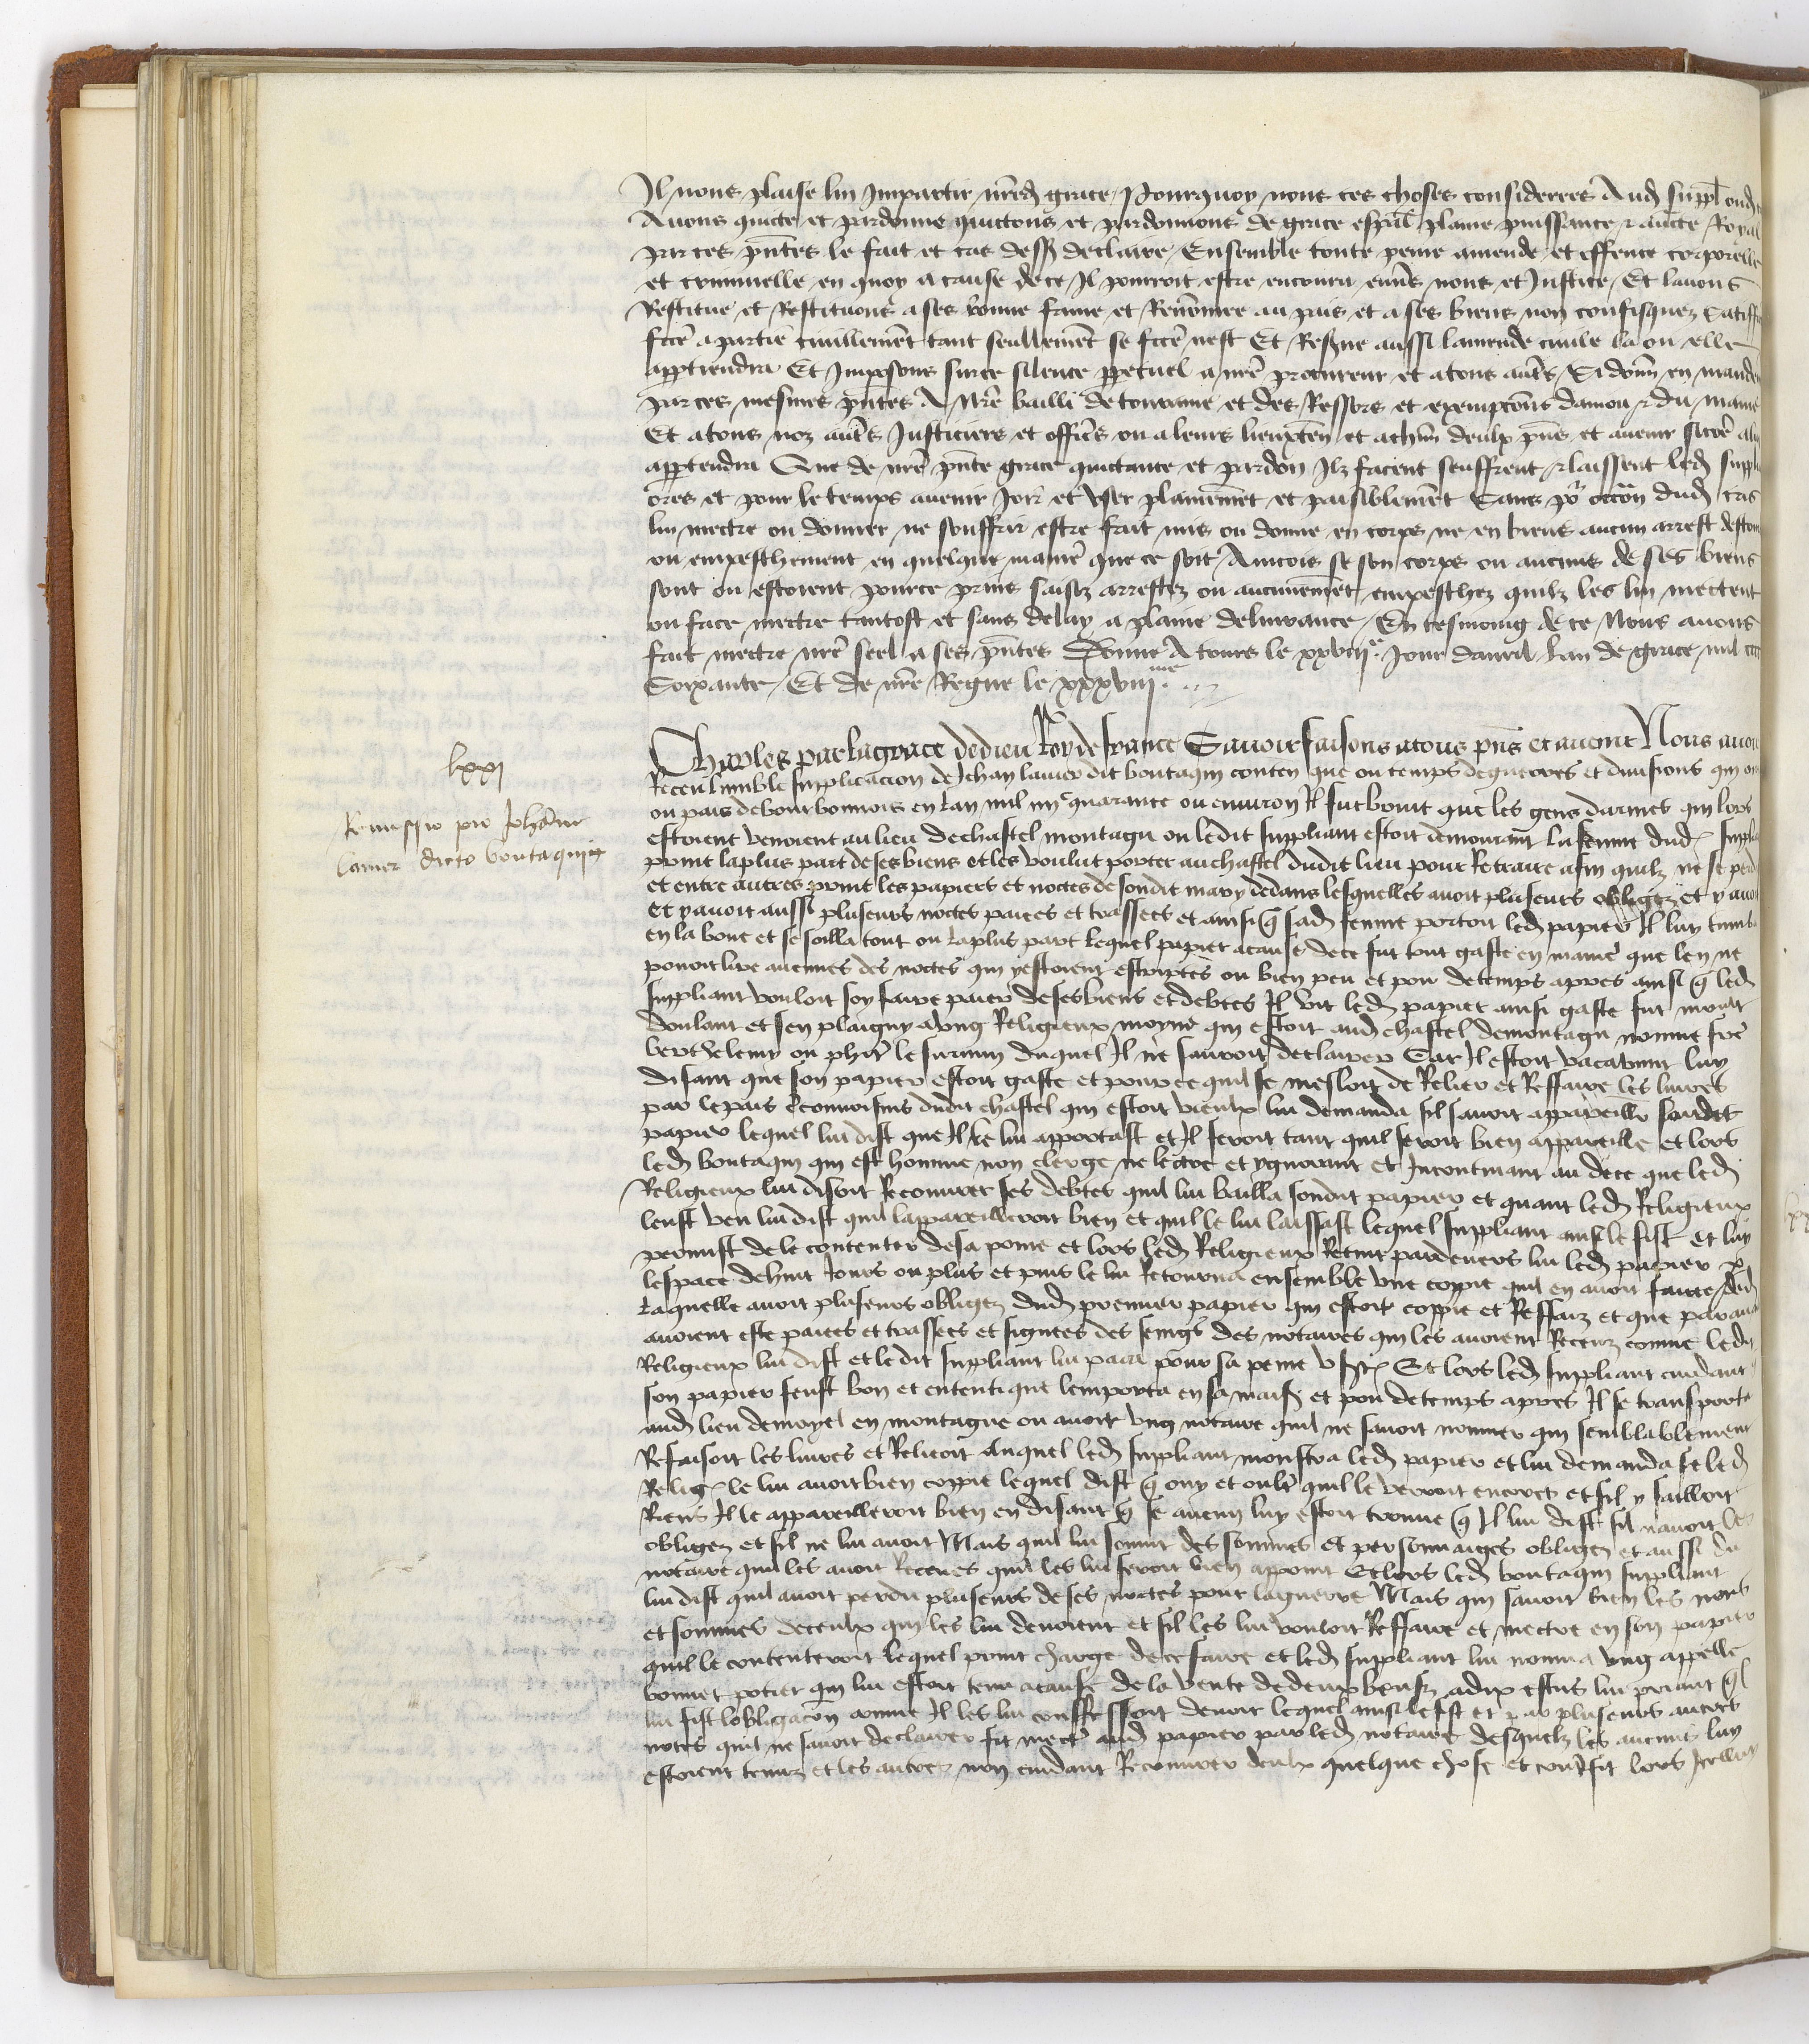 Il nous plaise lui impartir nred grace Pourquoy nous ces choses considerees Aud suppl ond
Avons quicte et pardonne quictons et pardonnons de grace espal plaine puissance et aucte Royal
par ces pntes le fait et cas dess declaire Ensemble toute peine amende et offence corporelle
et criminelle en quoy a cause de ce Il pourroit estre encouru envs nous et Justice Et lavons
Restitue et Restituons a ses bonne fame et Renommee au pais et a ses biens non confisquez Satiffa
fcte a partie civillement tant seullement se fcte nest Et Reserve aussi lamende civile la ou elle
appartiendra Et Imposons sur ce silence ppetuel a nre procureur et a tous autres Si donn en mande
par ces mesmes pntes A Nre bailli de touraine et des Ressors et exempcons danjou et du maine
Et a tous noz autres Justiciers et offics ou a leurs lieuxten et a chun deulx pns et avenir sicoe a lui
appartendra Que de nre pnte grace quictance et pardon Ilz facent seuffrent et laissent led suppl
ores et pour le temps avenir Joir et user plainement et paisiblement Sans po occon dud cas
lui mectre ou donner ne souffrir estre fait mis ou donne en corps ne en biens aucun arrest destour
ou empeschement en quelque manie que ce soit Aincois se son corps ou aucuns de ses biens
sont ou estoient pource prins saisiz arrestez ou aucunement empeschez quilz les lui mectent
ou face mectre tantost et sans delay a plaine delivrance En tesmoing de ce Nous avons
fait mectre nre seel a ses pntes Donne A tours le xxviiie Jour davril Lan de grace mil cccc
Soixante Et de nre Regne le xxxviiime
lxxi
Remissio pro Johanne
lamer dicto boutaquin
Charles par la grace de dieu Roy de france Savoir faisons a tous pns et avenir Nous avons
Receu lumble supplicacion de Jehan lamer dit boutaquin conten que ou temps de guerres et divisions qui on
ou pais de bourbonnois en Lan mil iiiic quarante ou environ Il fut bruit que les gens darmes qui lors
estoient venoient au lieu de chastel montagu ou ledit suppliant estoit demourant La femme dud suppliant
print la plus part de ses biens et les voulut porter au chastel dudit lieu pour Retraire afin quilz ne se perd
et entre autres print les papiers et noctes de sondit mary dedans lesquelles avoit pluseurs obligez et y avoit
et y avoit aussi pluseurs noctes paiees et trassees et ainsi q sad femme portoit led papier Il luy tumba
en la boue et se soilla tout ou la plus part Lequel papier a cause de ce fut tout gaste en manie que len ne
povoit lire aucunes des noctes qui y estoient escriptes ou bien peu et pou de temps apres ainsi q led
suppliant vouloit soy faire paier de ses biens et debtes Il vit led papier ainsi gaste fut moult
doulant et sen plaigny a ung Religieux moyne qui estoit aud chastel de montagu nomme fre
berthelemy ou phe le surnom duquel Il ne sauroit declairer Car Il estoit vacabunt luy
disant que son papier estoit gaste et pour ce quil se mesloit de Relier et Reffaire les livres
par le pais denviron dudit chastel qui estoit vieulx lui demanda sil savoit appareiller sondit
papier lequel lui dist que Il le lui apportast et Il feroit tant quil seroit bien appareille et lors
led boutaquin qui est homme non clerge ne lectre et ygnorant et Incontinant au dece que led
Religieux lui disoit Recouvrer ses debtes quil lui bailla sondit papier et quant led Religieux
leust veu lui dist quil lappareilleroit bien et quil le lui laissast lequel suppliant ainsi le fist Et luy
promist de le contenter de sa peine et lors led Religieux Retint par devers lui led papier p
lespace de huit Jours ou plus et puis le lui Retourna ensemble une coppie quil en avoit faicte
Laquelle avoit pluseurs obligez dud premier papier qui estoit coppie et Reffaiz et que paravant
avoient este paiees et trassees et signees des seings des notaires qui les avoient Receuz comme led
Religieux lui dist et ledit suppliant lui paia pour sa peine Et lors led suppliant cuidant
son papier feust bon et ententique lemporta en sa mais et pou de temps apres Il se transporta
aud lieu de mayel en montagne ou avoit ung notaire quil ne savoit nommer qui semblablement
Refaisoit les livres et Relioit Auquel led suppliant monstra led papier et lui demanda se led
Relig le lui avoit bien coppie lequel dist q ouy et oultre quil le verroit encores et sil y failloit
Riens Il le appareilleroit bien en disant q se aucun luy estoit tenu q Il lui dist sil navoit les
obligez et sil ne lui avoit Mais quil lui nommt des sommes et personnaiges obligez et aussi du
notaire quil les avoit Receues quil les lui feroit bien appoint Et lors led boutaquin suppliant
lui dist quil avoit perdu pluseurs de ses noctes pour la guerre Mais qui savoit bien les noms
et sommes de ceulx qui les lui devoient et sil les lui vouloit Reffaire et mectre en son papier
quil le contenteroit Lequel print charge de ce faire et led suppliant lui nomma ung appelle
bonnet potier qui lui estoit tenu a cause de la vente de deux beufz a dix escus lui priant ql
lui fist lobligacon comme Il les lui confessoit devoir lequel ainsi le fist et par pluseurs autres
notes quil ne savoit declairer fit mectre aud papier par led notaire desquelz les aucuns luy
estoient tenuz et les autres non cuidant Recouvrer deulx quelque chose et confit lors Icelluy